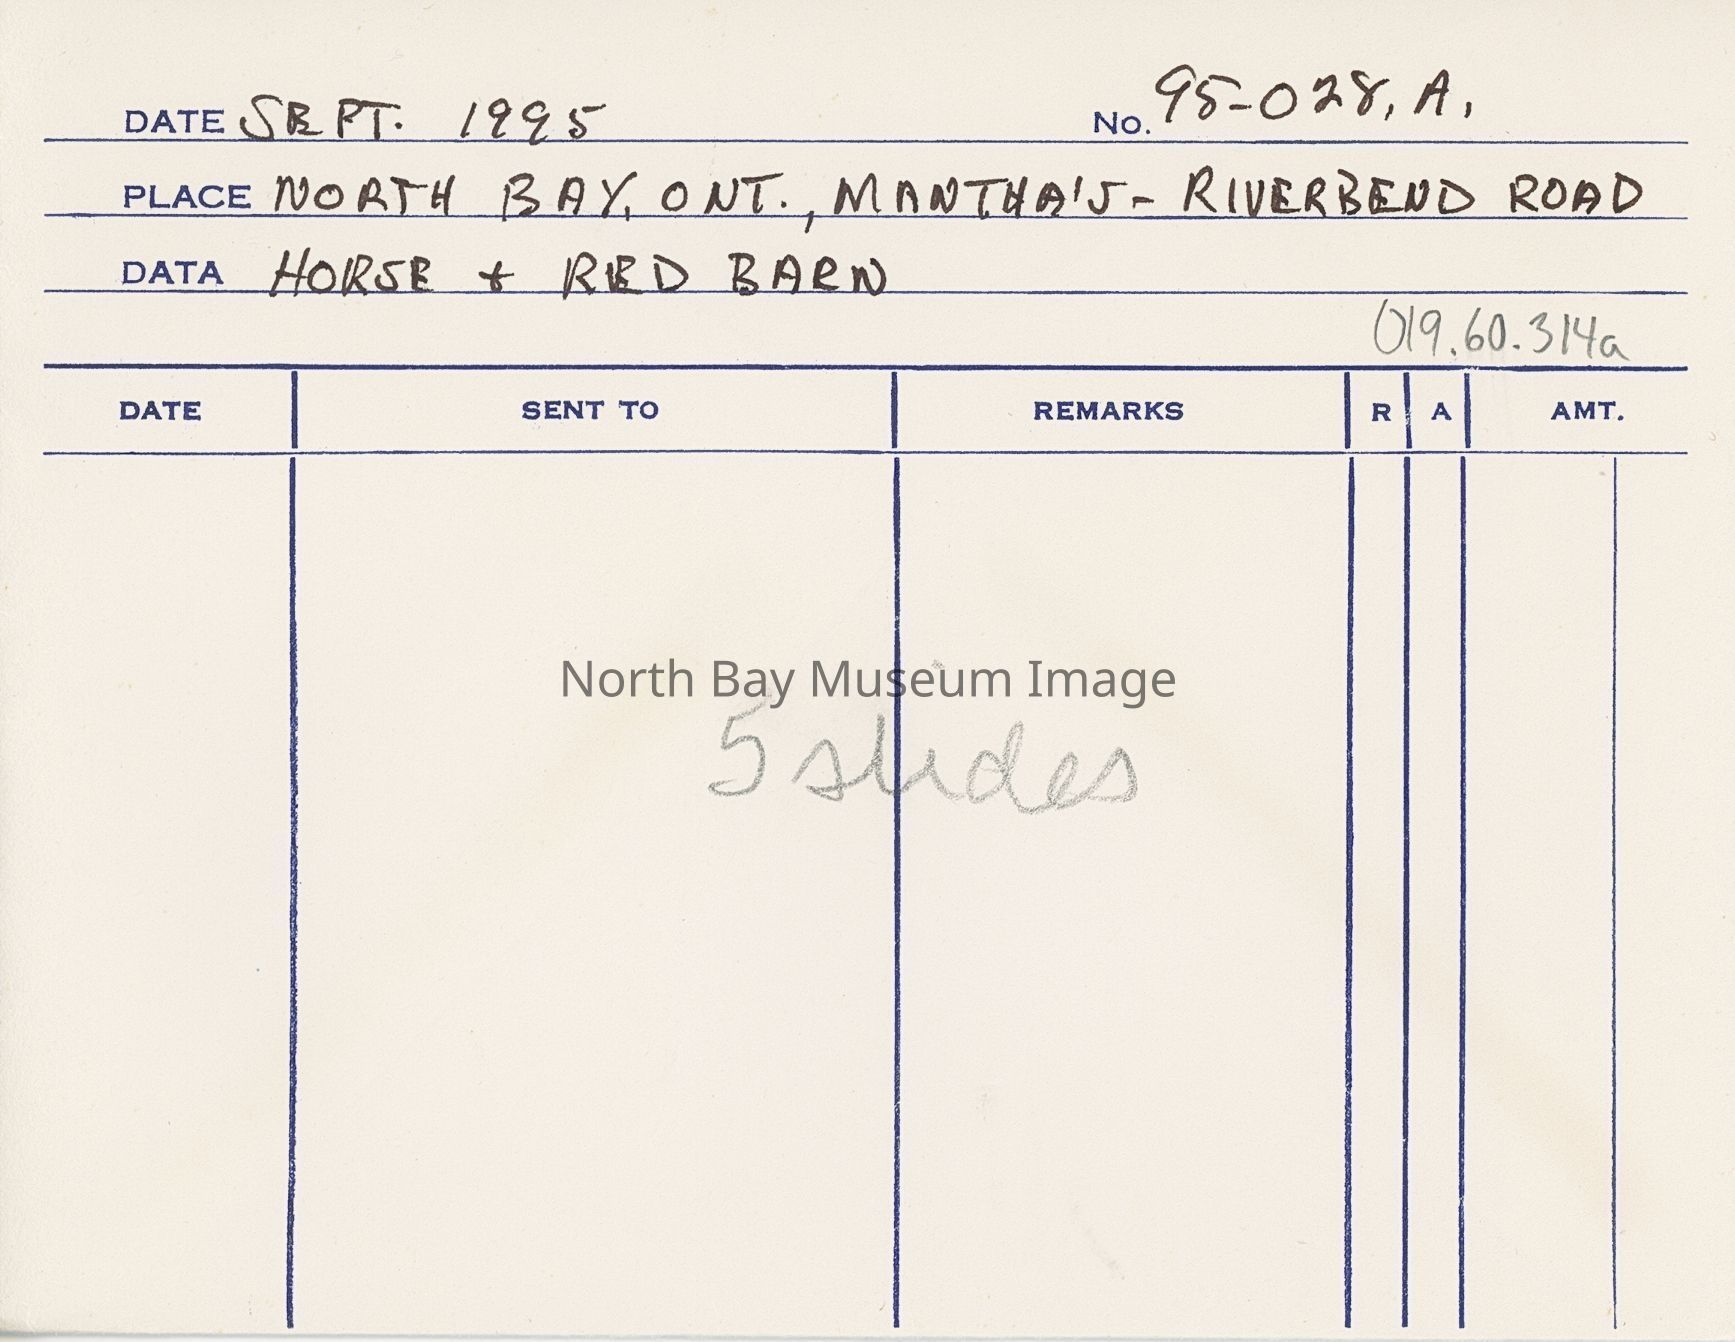 DATE SEPT. 1995 No. 95-028.A.
PLACE NORTH BAY, ONT., MANTHA'S - RIVERBEND ROAD
DATA HORSE + RED BARN
019.60.314a
DATE SENT TO REMARKS R A AMT.
North Bay Museum Image
5 slides